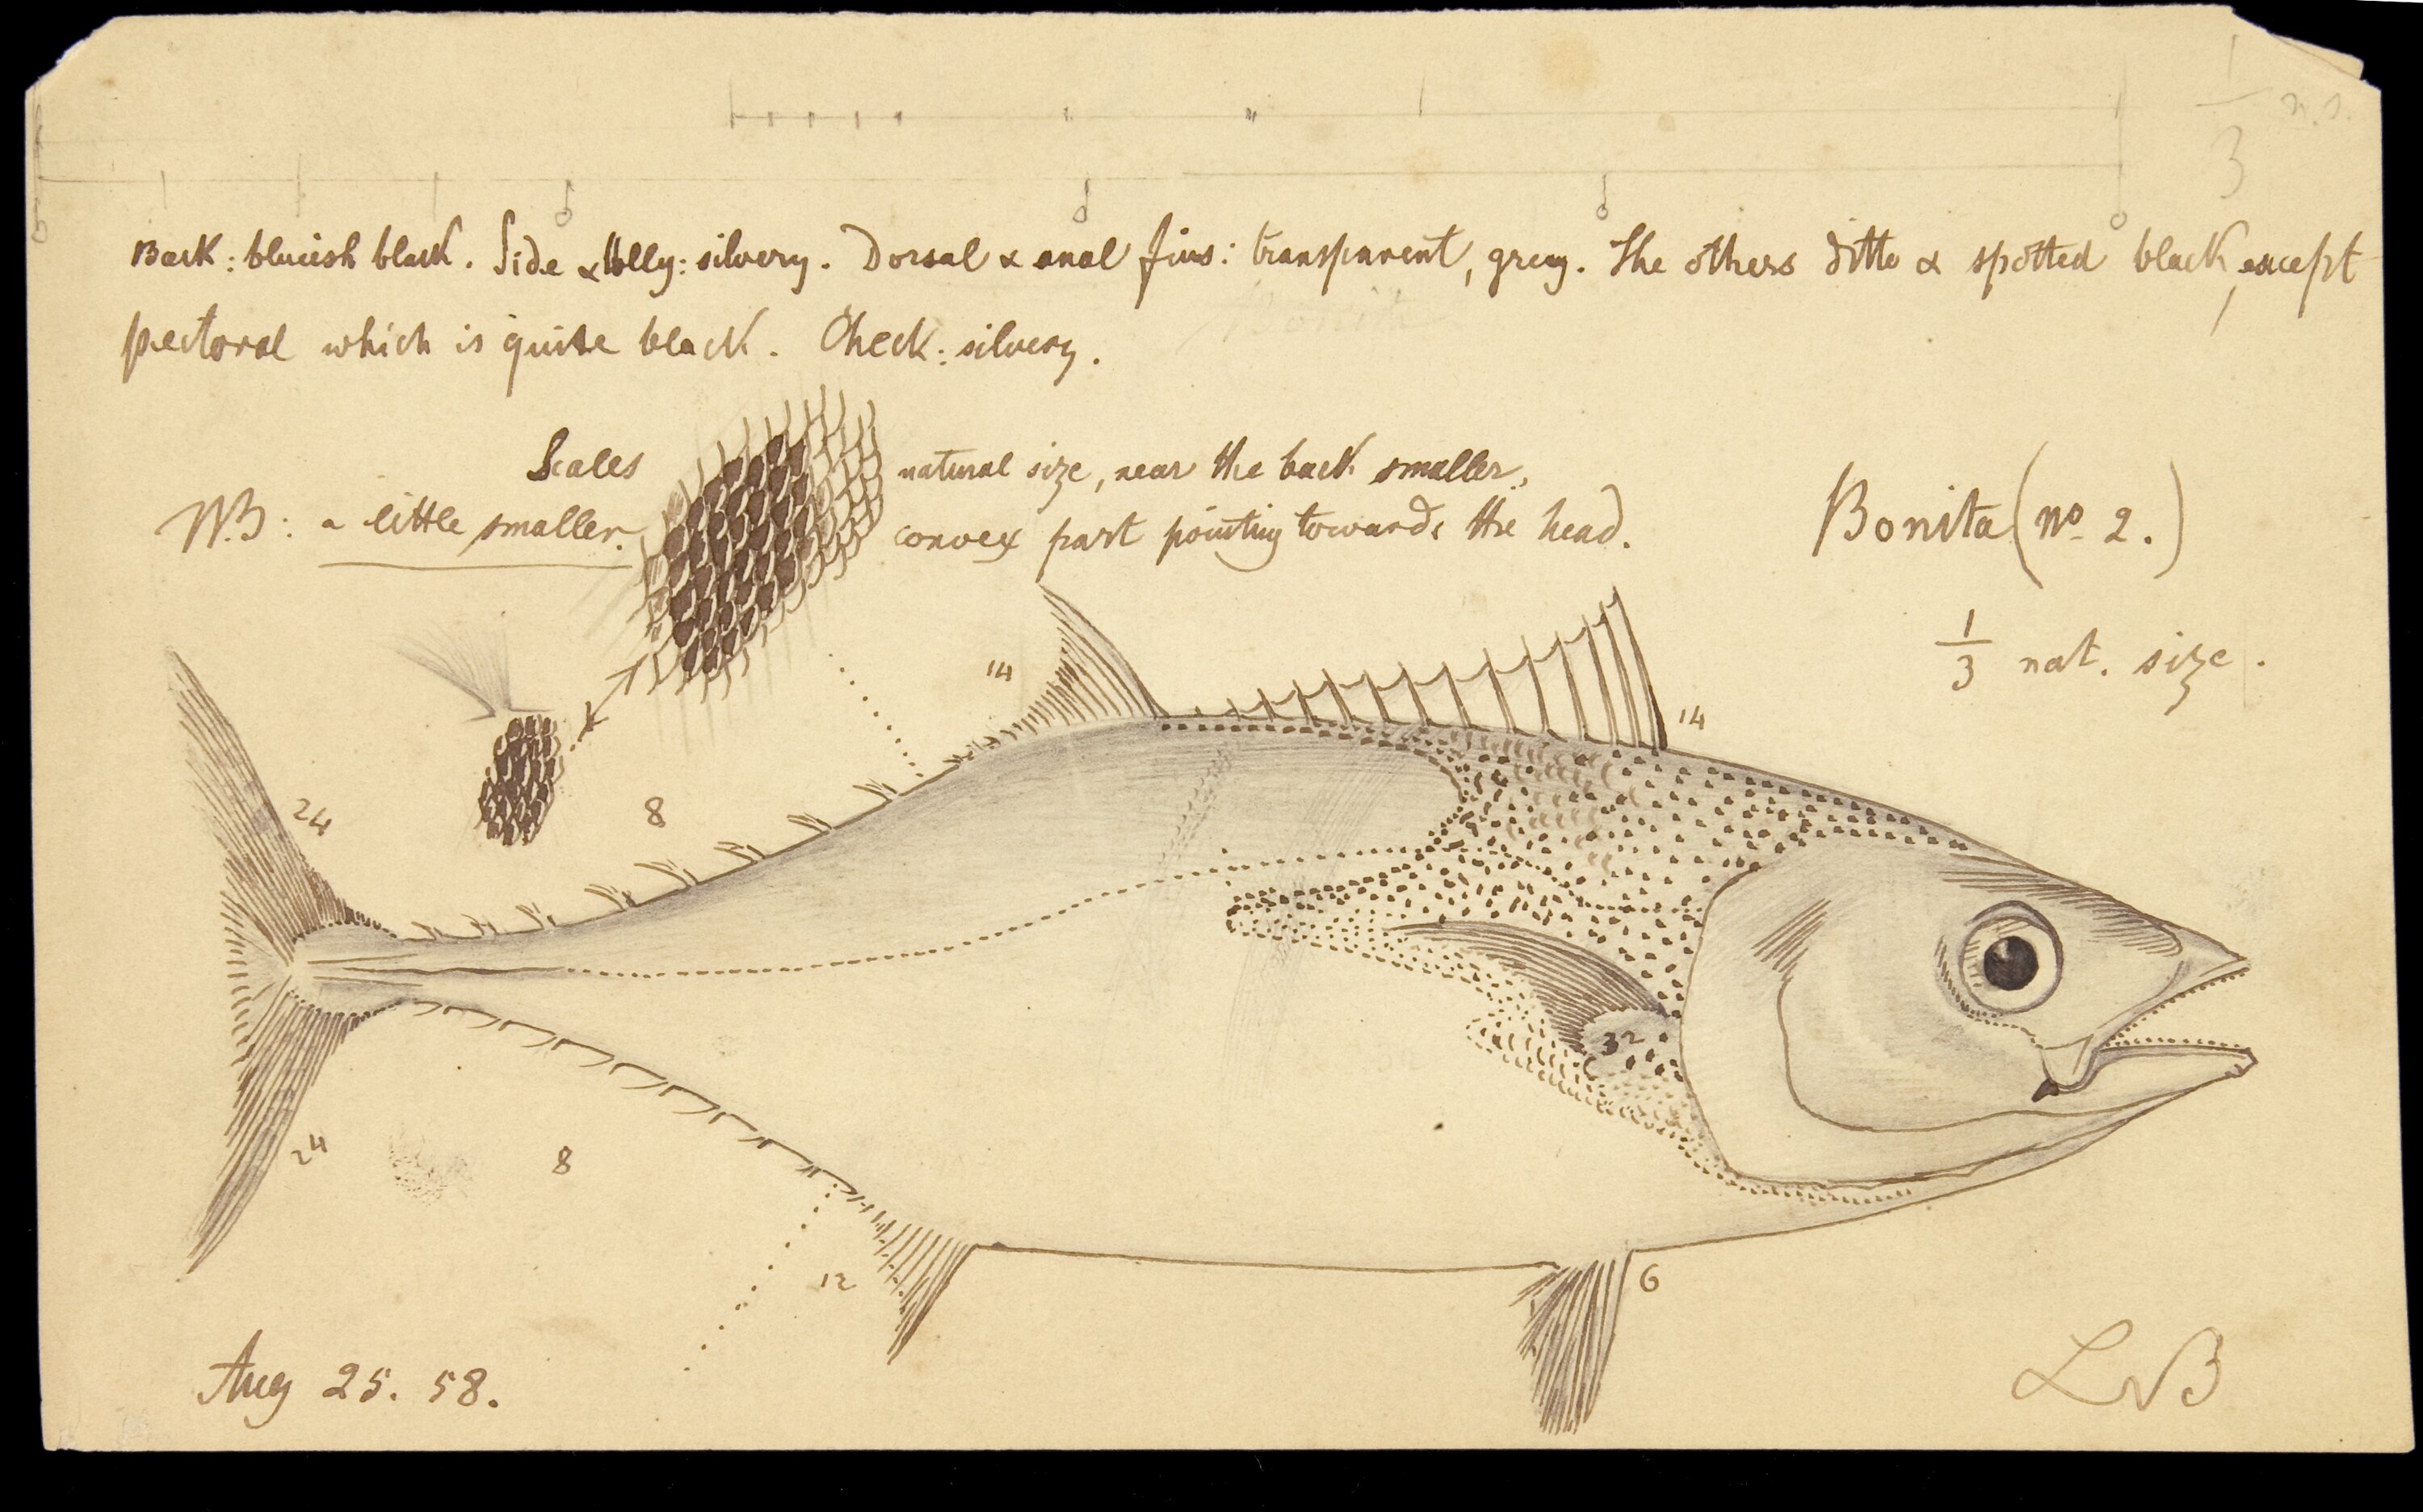 1/3 n.s.
Back: bluish black. Side & belly: silvery. Dorsal & anal fins: transparent, grey. The others ditto & spotted black, except
pectoral which is quite black. Cheek: silvery.
Bonita
Scales natural size, near the back smaller,
N.B: a little smaller. convex part pointing towards the head.
Bonita (No 2.)
1/3 nat. size.
14
14
24
8
32
24
8
12
6
Aug 25. 58.
LvB